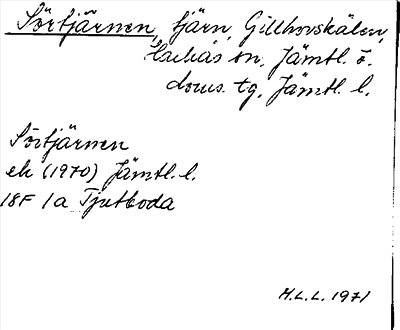 Sörtjärnen, tjärn, Gillhovskälen,
Hackås sn. Jämtl. ö.
doms. tg. Jämtl. l.
Sörtjärnen
ek (1970) Jämtl. l.
18F 1a Tjutboda
H.L.L. 1971